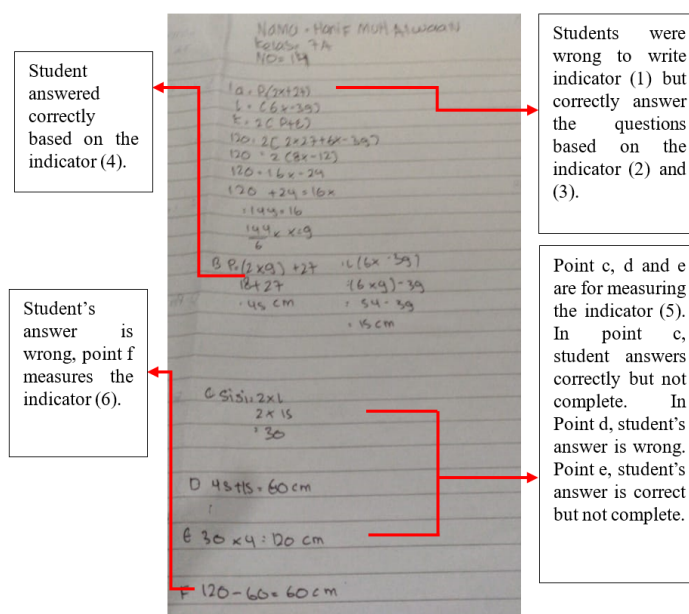 Student
answered
correctly
based on the
indicator (4).
Student's
answer is
wrong, point f
measures the
indicator (6).
Nama = Hanif MUH Alwaan
Kelas = 7A
NO = 14
1 a = P(2x+24)
L = (6x-39)
K = 2(P+L)
120 = 2(2x27+6x-39)
120 = 2(8x-12)
120 = 16x-24
120 +24 = 16x
=144=16
144/6 x x=9
B P=(2x9)+27 =L(6x-39)
18+27 =(6x9)-39
=45 cm = 54-39
= 15 cm
C Sisi = 2xL
2x15
=30
D 45+15=60 cm
E 30 x4 = 120 cm
F 120-60=60 cm
Students were
wrong to write
indicator (1) but
correctly answer
the questions
based on the
indicator (2) and
(3).
Point c, d and e
are for measuring
the indicator (5).
In point c,
student answers
correctly but not
complete. In
Point d, student's
answer is wrong.
Point e, student's
answer is correct
but not complete.